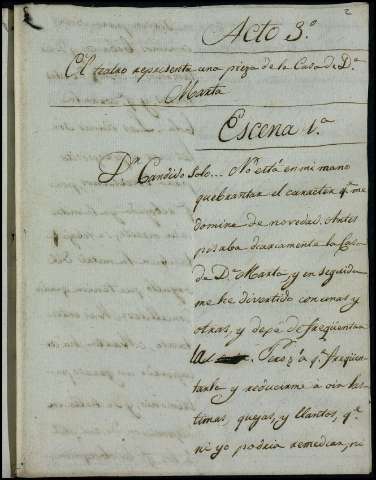 2
Acto 3.º
El teatro representa una pieza de la Casa de D.ª
Marta
Escena 1.ª
D.n Candido solo... No está en mi mano
quebrantar el caracter q.e me
domina de novedad. Antes
pasaba diariamente la Casa
de D.ª Marta, y en seguida
me he divertido con unas y
otras, y dejé de freqüentar
la Pero á q.e freqüen-
tarla y reducirme a oir las-
timas, quejas, y llantos, q.e
ni yo podria remediar, ni